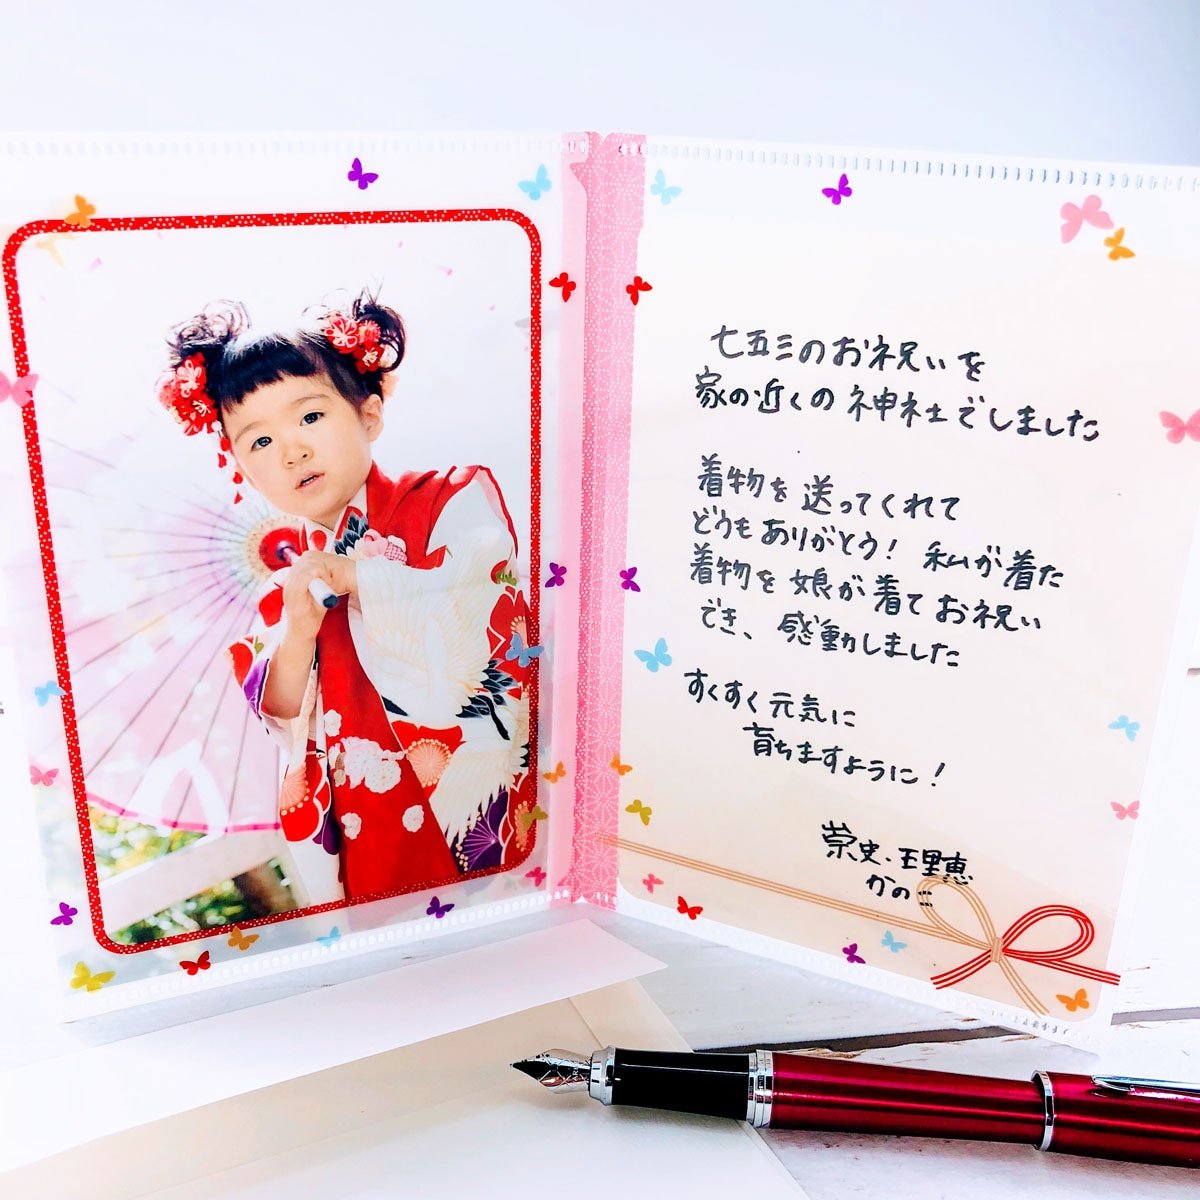 七五三のお祝いを
家の近くの神社でしました
着物を送ってくれて
どうもありがとう! 私が着た
着物を娘が着てお祝い
でき、感動しました
すくすく元気に
育ちますように!
崇史・王里恵
かの